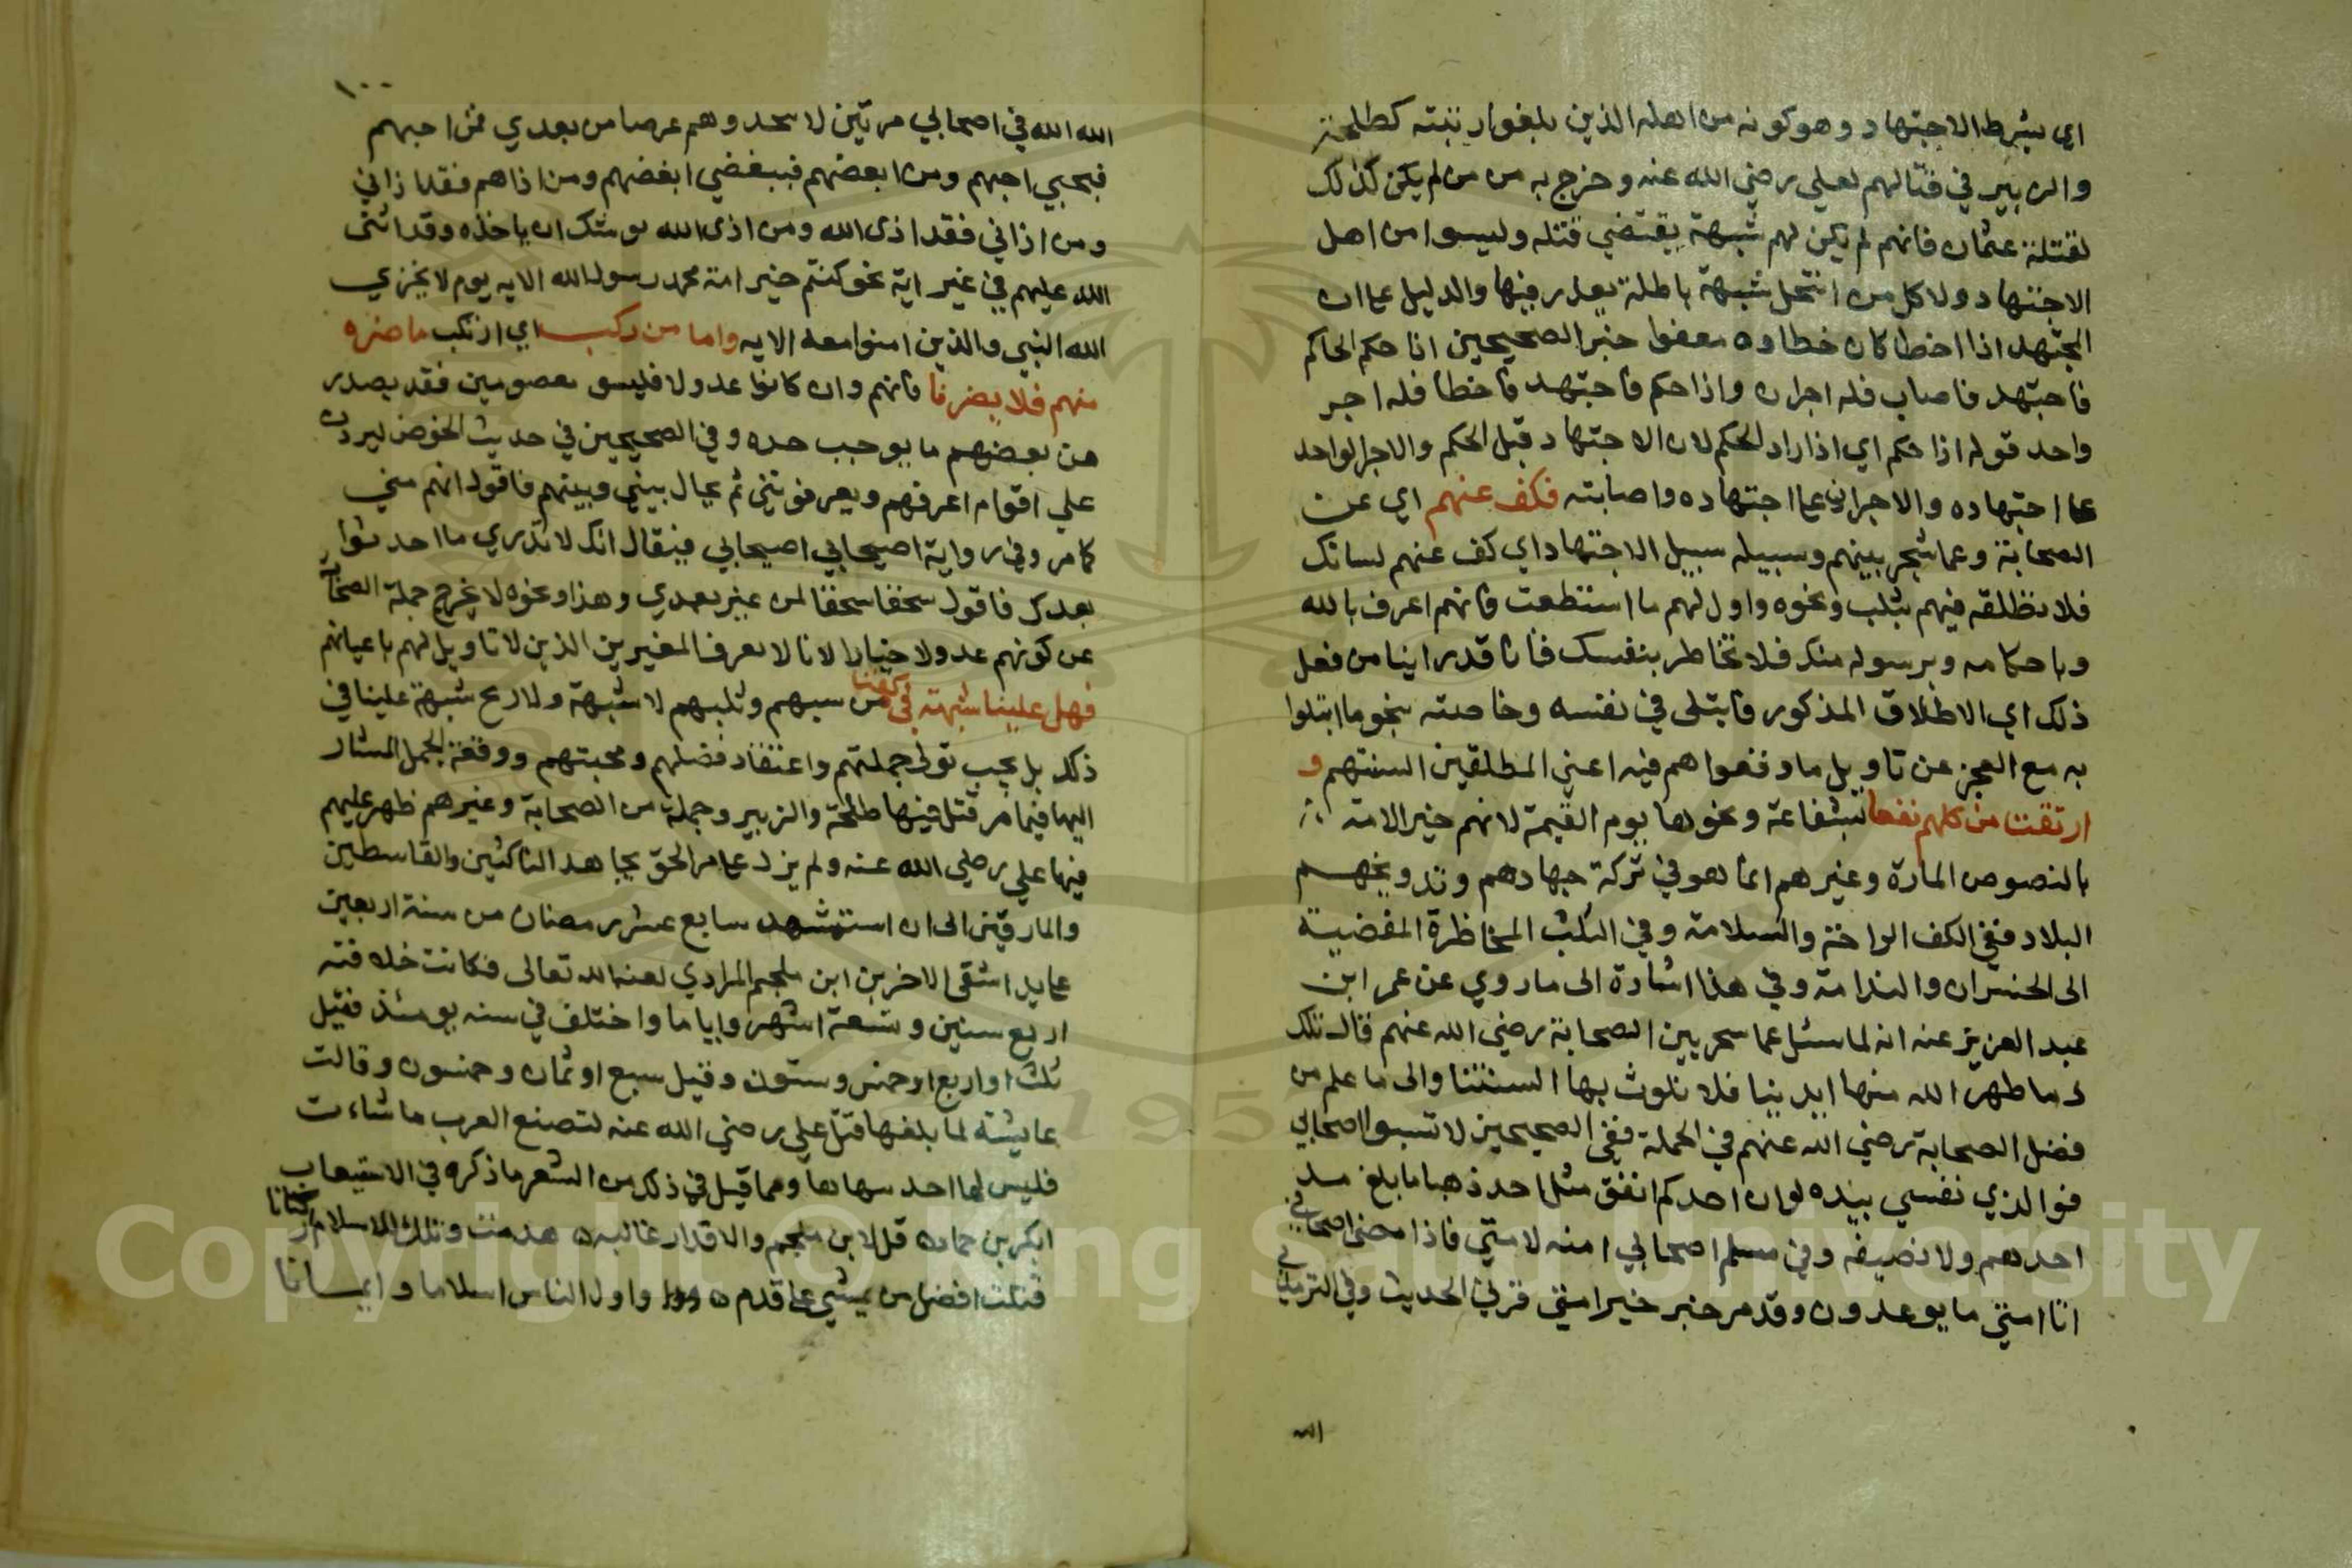 اي بشرط الاجتهاد وهو كونه من اهله الذين بلغوا رتبته كطلحة
والزبير في قتالهم لعلي رضي الله عنه وخرج به من من لم يكن كذلك
لقتلة عثمان فانهم لم يكن لهم شبهة يقتضي قتله وليسوا من اهل
الاجتهاد ولا كل من انتحل شبهة باطلة يعذر فيها والدليل على ان
المجتهد اذا اخطا كان خطاوه معفوا خبر الصحيحين اذا حكم الحاكم
فاجتهد فاصاب فله اجران واذا حكم فاجتهد فاخطا فله اجر
واحد قوله اذا حكم اي اذا اراد الحكم لان الاجتهاد قبل الحكم والاجر الواحد
على اجتهاده والاجران على اجتهاده واصابته فكف عنهم اي عن
الصحابة وعما شجر بينهم وسبيله سبيل الاجتهاد اي كف عنهم لسانك
فلا تطلقه فيهم بثلب ونحوه واول لهم ما استطعت فانهم اعرف بالله
وباحكامه وبرسوله منك فلا تخاطر بنفسك فانا قد راينا من فعل
ذلك اي الاطلاق المذكور فابتلي في نفسه وخاصته بنحو ما ابتلوا
به مع العجز عن تاويل ما وقعوا هم فيه اعني المطلقين السنتهم و
ارتقت من كلهم نفعا بشفاعة ونحوها يوم القيمة لانهم خير الامة
بالنصوص المارة وغيرهم انما هو في تركة جهادهم وتدويخهم
البلاد ففي الكف الراحة والسلامة وفي الثلب المخاطرة المفضية
الى الخسران والندامة وفي هذا اشارة الى ما روي عن عمر ابن
عبد العزيز عنه انه لما سئل عما شجر بين الصحابة رضي الله عنهم قال تلك
دما طهر الله منها ايدينا فلا نلوث بها السنتنا والى ما علم من
فضل الصحابة رضي الله عنهم في الجملة ففي الصحيحين لا تسبوا اصحابي
فوالذي نفسي بيده لو ان احدكم انفق مثل احد ذهبا ما بلغ مد
احدهم ولا نصيفه وفي مسلم اصحابي امنه لامتي فاذا مضى اصحابي
اتا امتي ما يوعدون وقد مر خبر خير امتي قرني الحديث وفي الترمذي
الله
١٠٠
الله الله في اصحابي مرتين لا تتخذوهم غرضا من بعدي فمن احبهم
فبحبي احبهم ومن ابغضهم فببغضي ابغضهم ومن اذاهم فقد اذاني
ومن اذاني فقد اذى الله ومن اذى الله يوشك ان ياخذه وقد اثنى
الله عليهم في غير اية نحو كنتم خير امة محمد رسول الله الايه يوم لا يخزي
الله النبي والذين امنوا معه الايه واما من ركب اي ارتكب ما ضره
منهم فلا يضرنا فانهم وان كانوا عدولا فليسو بمعصومين فقد يصدر
من بعضهم ما يوجب حده وفي الصحيحين في حديث الحوض ليردن
علي اقوام اعرفهم ويعرفونني ثم يحال بيني وبينهم فاقول انهم مني
كما مر وفي رواية اصيحابي اصيحابي فيقال انك لا تدري ما احدثوا
بعدك فاقول سحقا سحقا لمن غير بعدي وهذا ونحوه لا يخرج جملة الصحابة
عن كونهم عدولا خيارا لانا لا نعرف المغيرين الذين لا تاويل لهم باعيانهم
فهل علينا شبهة في كفنا من سبهم وثلبهم لا شبهة ولا ريح شبهة علينا في
ذلك بل يجب تولي جملتهم واعتقاد فضلهم ومحبتهم ووقعة الجمل المشار
اليها فيما مر قتل فيها طلحة والزبير وجملة من الصحابة وغيرهم ظهر عليهم
فيها علي رضي الله عنه ولم يزل على مر الحق يجاهد الناكثين والقاسطين
والمارقين الى ان استشهد سابع عشر رمضان من سنة اربعين
على يد اشقى الاخرين ابن ملجم المرادي لعنه الله تعالى فكانت خلافته
اربع سنين وتسعة اشهر واياما واختلف في سنه يومئذ فقيل
ثلث او اربع او خمس وستون وقيل سبع او ثمان وخمسون وقالت
عايشة لما بلغها قتل علي رضي الله عنه لتصنع العرب ما شاءت
فليس لها احد ينهاها ومما قيل في ذلك من الشعر ما ذكره في الاستيعاب
لبكر بن حماد قل لابن ملجم والاقدار غالبة هدمت ويلك للاسلام اركانا
قتلت افضل من يمشي على قدم واول الناس اسلاما وايمانا
Copyright © King Saud University
195